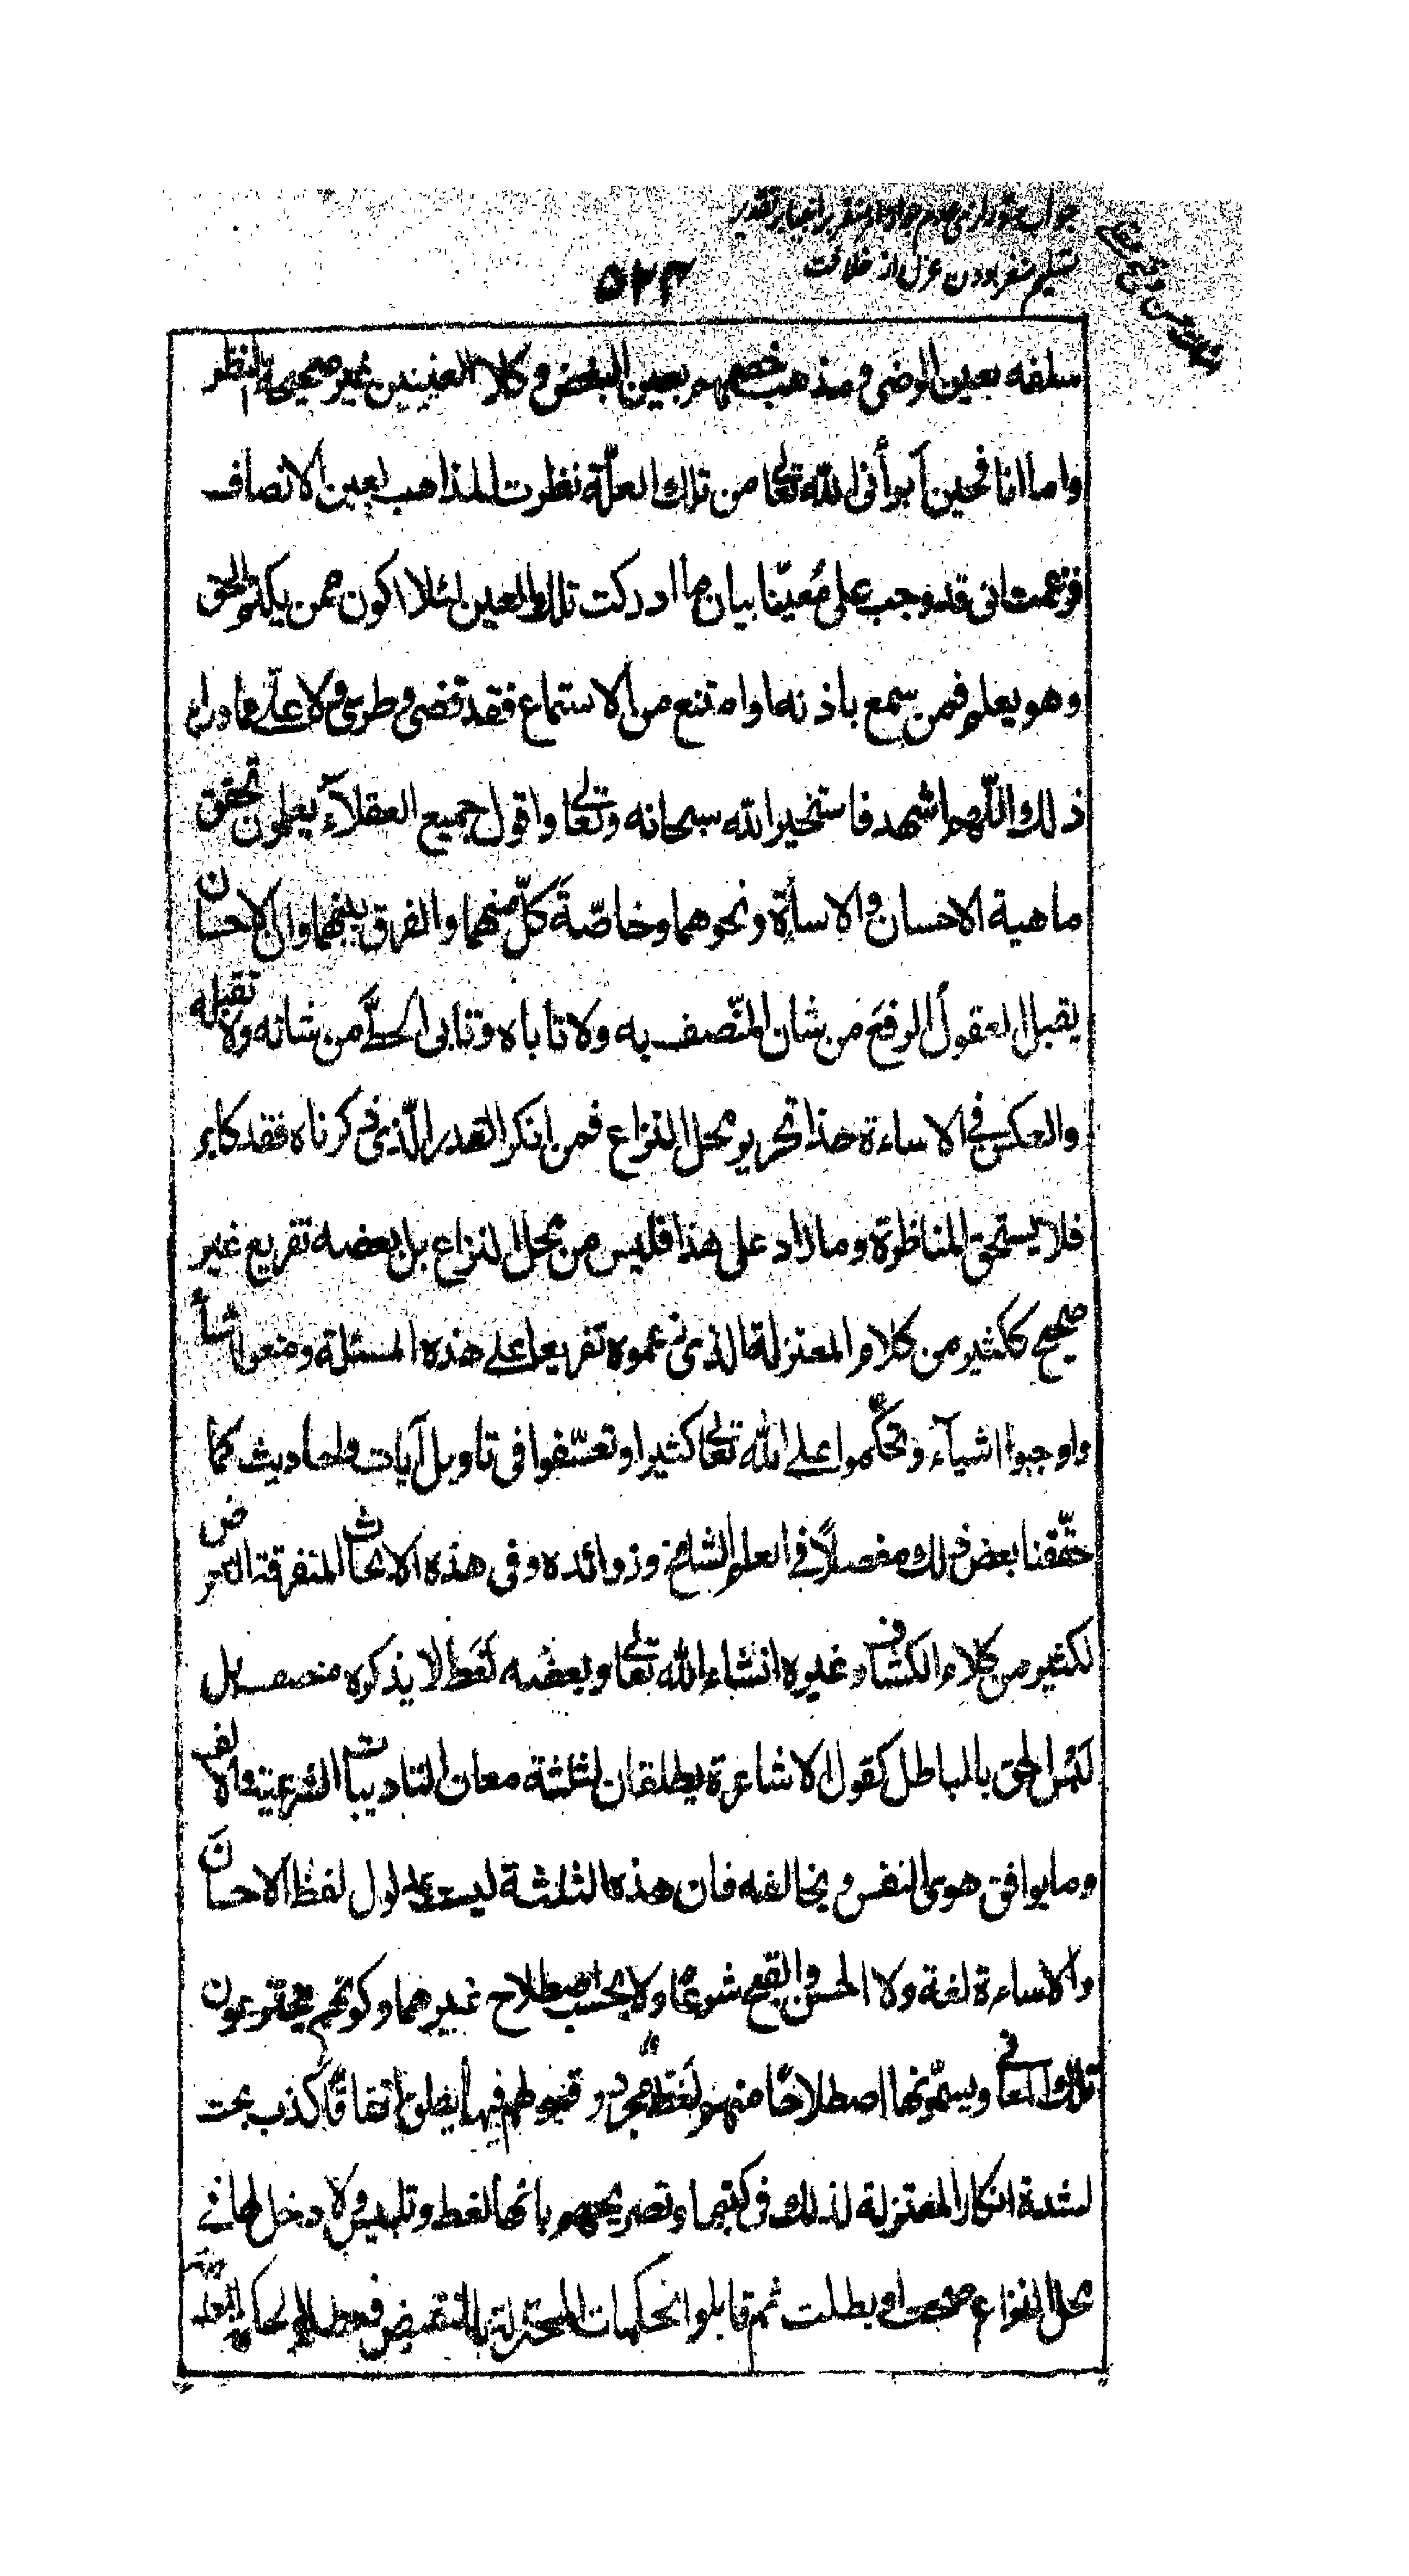 تسليم سفر بودن عزل از خلافت
۵۲۳
سلفه بعين الرضى ومذهب خصمهم بعين البغض وكلا العينين غير صحيحة النظر
واما انا فحين ابرأنى الله تعالى من تلك العلّة نظرت المذاهب بعين الانصاف
فزعمت انى قد وجب علىّ مُعيّنا بيان ما ادركت تلك العين لئلا اكون ممن يكتم الحق
وهو يعلم فمن سمع باذنه او امتنع من الاستماع فقد قضى وطرى ولا علىّ مما وراء
ذلك اللّهم اشهد فاستخير الله سبحانه وتعالى واقول جميع العقلاء يعلمون تحقق
ماهية الاحسان والاسأة ونحوهما وخاصّة كلّ منهما والفرق بينهما وان الاحسان
يقبل العقول الرفع من شان المتّصف به ولا تاباه وتابى الحطّ من شانه ولا تقبله
والعكس في الاساءة هذا تحرير محل النزاع فمن انكر القدر الّذى ذكرناه فقد كابر
فلا يستحق المناظرة وما زاد على هذا فليس من محل النزاع بل بعضه تفريع غير
صحيح ككثير من كلام المعتزلة الذى زعموه تفريعا على هذه المسئلة ومنعوا اشيأ
واوجبوا اشيآء وتحكّموا على الله تعالى كثيرا وتعسّفوا فى تاويل آيات واحاديث كما
حقّقنا بعض ذلك مفصلاً في العلم الشامخ وزوائده وفى هذه الابحاث المتفرقة التعرض
لكثير من كلام الكشاف وغيره انشاء الله تعالى وبعضُه لَغَط لا يذكره منصف بل
لَبْس الحق بالباطل كقول الاشاعرة يطلقان لثلثة معان التاديبات الشرعية والالف
وما يوافق هوى النفس ويخالفه فان هذه الثلثة ليست مدلول لفظ الاحسان
والاساءة لغة ولا الحسن والقبيح شرعًا ولا بحسب اصطلاح غيرهما وكونهم يخترعون
تلك المعانى ويسمّونها اصطلاحًا منهم لَغَط مجرد وقولهم فيها يطلق اتفاقًا كذب بحت
لشدة انكار المعتزلة لذلك فى كتبها وتصريحهم بانها لغط وتلبيس ولا دخل لها في
محل النزاع صحت او بطلت ثم قابلوا تحكمات المعتزلة بالنقيض